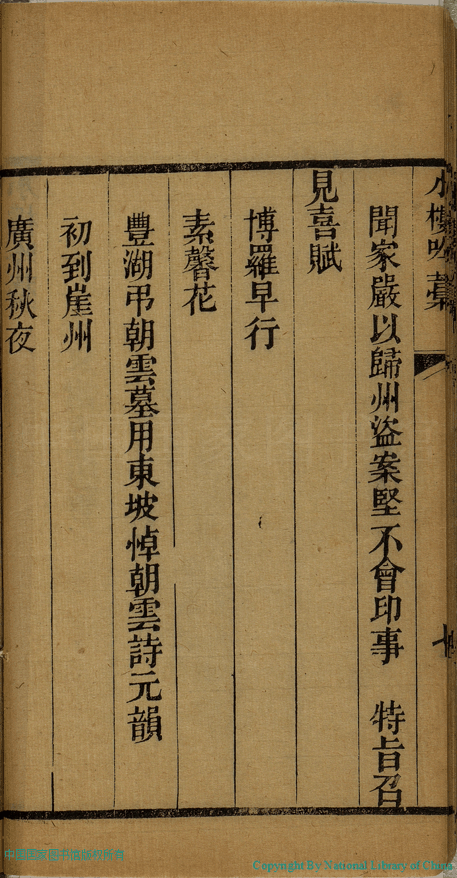 小樓吟藁
聞家嚴以歸州盜案堅不會印事　特旨召
見喜賦
博羅早行
素馨花
豐湖弔朝雲墓用東坡悼朝雲詩元韻
初到崖州
廣州秋夜
Copyright By National Library of China